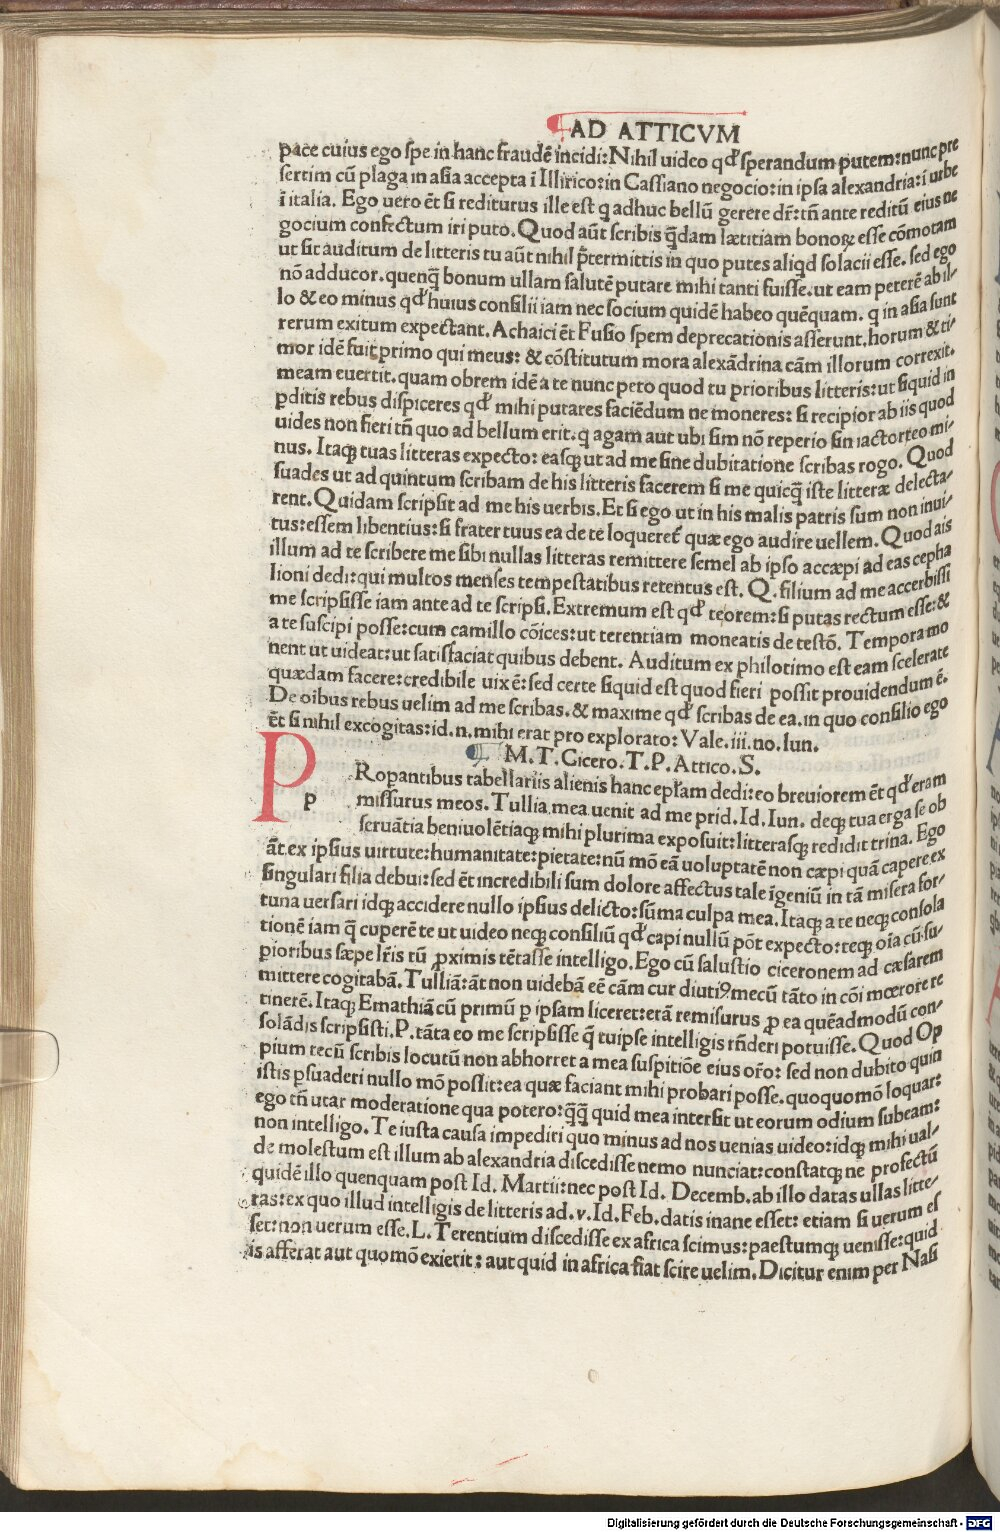 AD ATTICVM
pace cuius ego ſpe in hanc fraudē incidi: Nihil uideo qđ ſperandum putem: nunc pre
ſertim cū plaga in aſia accepta ī Illirico: in Caſſiano negocio: in ipſa alexandria: ī urbe
ī italia. Ego uero ēt ſi rediturus ille eſt q adhuc bellū gerere dr̄: tn̄ ante reditū eius ne
gocium confectum iri puto. Quod aūt ſcribis q̄dam lætitiam bonoꝝ eſſe cōmotam
ut ſit auditum de litteris tu aūt nihil p̄termittis in quo putes aliqd ſolacii eſſe. ſed ego
nō adducor. quenq̄ bonum ullam ſalutē putare mihi tanti fuiſſe. ut eam peterē ab il-
lo & eo minus qđ huius conſilii iam nec ſocium quidē habeo quēquam. q in aſia ſunt
rerum exitum expectant. Achaici ēt Fuſio ſpem deprecationis afferunt. horum & ti-
mor idē fuit primo qui meus: & cōſtitutum mora alexādrina cām illorum correxit.
meam euertit. quam obrem idē a te nunc peto quod tu prioribus litteris: ut ſiquid in
ꝑditis rebus diſpiceres qđ mihi putares faciēdum ne moneres: ſi recipior ab iis quod
uides non fieri tn̄ quo ad bellum erit. q agam aut ubi ſim nō reperio ſin iactor teo mi-
nus. Itaqꝫ tuas litteras expecto: eaſqꝫ ut ad me ſine dubitatione ſcribas rogo. Quod
ſuades ut ad quintum ſcribam de his litteris facerem ſi me quicq̄ iſte litteræ delecta-
rent. Quidam ſcripſit ad me his uerbis. Et ſi ego ut in his malis patris ſum non inui-
tus: eſſem libentius: ſi frater tuus ea de te loqueret̉ quæ ego audire uellem. Quod ais
illum ad te ſcribere me ſibi nullas litteras remittere ſemel ab ipſo accæpi ad eas cepha
lioni dedi: qui multos menſes tempeſtatibus retentus eſt. Q. filium ad me accerbiſſi
me ſcripſiſſe iam ante ad te ſcripſi. Extremum eſt qđ teorem: ſi putas rectum eſſe: &
a te ſuſcipi poſſe: cum camillo cōices: ut terentiam moneatis de teſtō. Tempora mo
nent ut uideat: ut ſatiſfaciat quibus debent. Auditum ex philotimo eſt eam ſcelerate
quædam facere: credibile uix ē: ſed certe ſiquid eſt quod fieri poſſit prouidendum ē.
De oībus rebus uelim ad me ſcribas. & maxime qđ ſcribas de ea. in quo conſilio ego
ēt ſi nihil excogitas: id. n. mihi erat pro explorato: Vale. iii. no. Iun.
M. T. Cicero. T. P. Attico. S.
P
p
Ropantibus tabellariis alienis hanc epl̄am dedi: eo breuiorem ēt qđ eram
miſſurus meos. Tullia mea uenit ad me prid. Id. Iun. deqꝫ tua erga ſe ob
ſeruātia beniuolētiaqꝫ mihi plurima expoſuit: litteraſqꝫ redidit trina. Ego
āt ex ipſius uirtute: humanitate: pietate: nū mō eā uoluptatē non cæpi quā capere ex
ſingulari filia debui: ſed ēt incredibili ſum dolore affectus tale īgeniū in tā miſera for-
tuna uerſari idqꝫ accidere nullo ipſius delicto: ſūma culpa mea. Itaqꝫ a te neqꝫ conſola
tionē iam q̄ cuperē te ut uideo neqꝫ conſiliū qđ capi nullū pōt expecto: teqꝫ oīa cū ſu-
ꝑioribus ſæpe lr̄is tū ꝓximis tētaſſe intelligo. Ego cū ſaluſtio ciceronem ad cæſarem
mittere cogitabā. Tulliā: āt non uidebā eē cām cur diutiꝰ mecū tāto in cōi mœrore re
tinerē. Itaqꝫ Emathiā cū primū ꝑ ipſam liceret: erā remiſurus ꝓ ea quēadmodū con-
ſolādis ſcripſiſti. P. tāta eo me ſcripſiſſe q̄ tuipſe intelligis rn̄deri potuiſſe. Quod Op
pium tecū ſcribis locutū non abhorret a mea ſuſpitiōe eius or̄o: ſed non dubito quin
iſtis ꝑſuaderi nullo mō poſſit: ea quæ faciant mihi probari poſſe. quoquomō loquar:
ego tn̄ utar moderatione qua potero: q̄q̄ quid mea interſit ut eorum odium ſubeam:
non intelligo. Te iuſta cauſa impediri quo minus ad nos uenias uideo: idqꝫ mihi ual-
de moleſtum eſt illum ab alexandria diſcediſſe nemo nunciat: conſtatqꝫ ne profectū
quidē illo quenquam poſt Id. Martii: nec poſt Id. Decemb. ab illo datas ullas litte-
ras: ex quo illud intelligis de litteris ad. v. Id. Feb. datis inane eſſet: etiam ſi uerum eſ
ſet: non uerum eſſe. L. Terentium diſcediſſe ex africa ſcimus: paeſtumqꝫ ueniſſe: quid
is afferat aut quomō exierit: aut quid in africa fiat ſcire uelim. Dicitur enim per Naſi
Digitalisierung gefördert durch die Deutsche Forschungsgemeinschaft - DFG